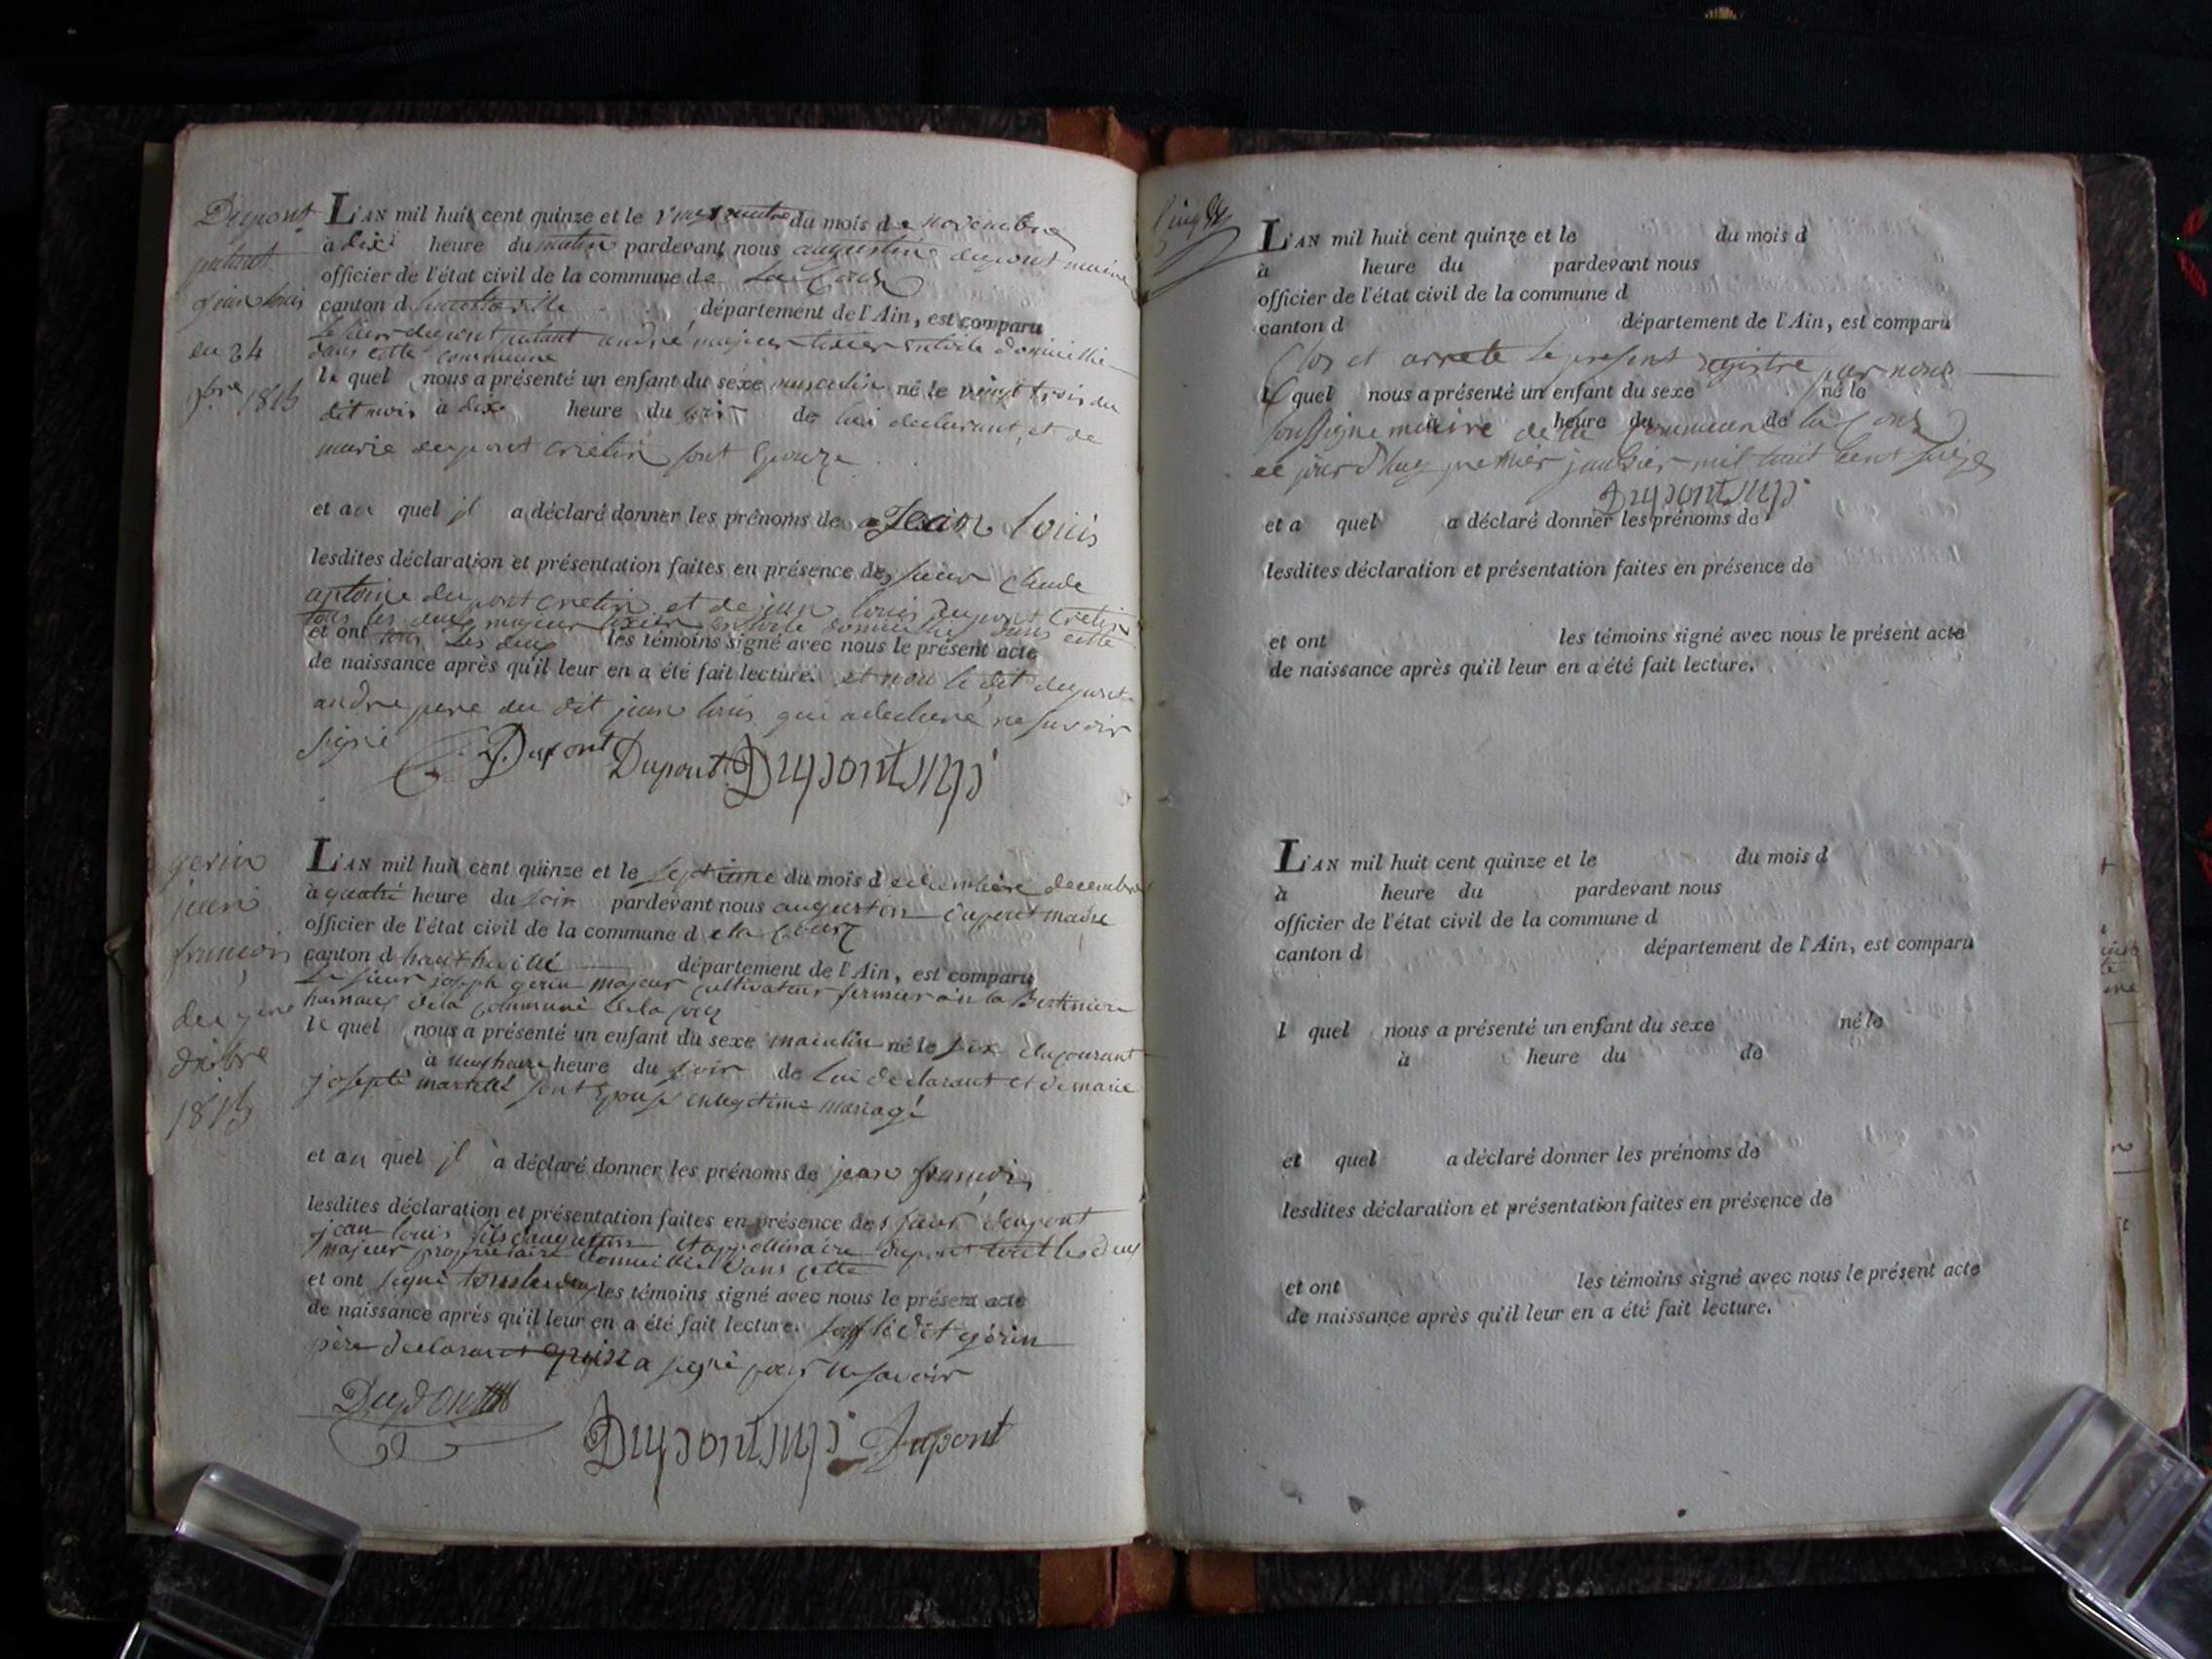 Dupont
jean louis
du 24
9bre 1815
L'AN mil huit cent quinze et le du mois de novembre
à dix heure du matin pardevant nous augustin dupont maire
officier de l'état civil de la commune de la Coux
canton d département de l'Ain, est comparu
le sieur dupont andré majeur domicilié
dans cette commune
le quel nous a présenté un enfant du sexe masculin né le vingt trois du
dit mois à dix heure du soir de lui declarant et de
marie dupont cretin sont Epouze
et au quel il a déclaré donner les prénoms de Jean louis
lesdites déclaration et présentation faites en présence des sieur claude
antoine dupont cretin et de jean louis dupont cretin
tous les deux majeur domicilié dans cette
et ont tous les deux les témoins signé avec nous le présent acte
de naissance après qu'il leur en a été fait lecture. et non le dit dupont
andre pere du dit jean louis qui a declaré ne savoir
signé
Dupont Dupont Dupont
gerin
jean
françois
du
dixbre
1815
L'AN mil huit cent quinze et le septieme du mois d decembre
à quatre heure du soir pardevant nous augustin dupont maire
officier de l'état civil de la commune d ela Coux
canton d hauteville département de l'Ain, est comparu
Le sieur joseph gerin majeur cultivateur fermier
hameau dela commune dela
le quel nous a présenté un enfant du sexe masculin né le six du courant
à neuf heure heure du soir de lui declarant et de marie
josepte sont Epouse en legitime mariage
et au quel il à déclaré donner les prénoms de jean françois
lesdites déclaration et présentation faites en présence des sieur dupont
jean louis fils d'augustin et appollinaire dupont tout les deux
majeur propriétaire domicilié dans cette
et ont signé tous les deux les témoins signé avec nous le présent acte
de naissance après qu'il leur en a été fait lecture. le dit gerin
père declarant a signé pour ne savoir
Dupont
Dupont Dupont
L'AN mil huit cent quinze et le du mois d
à heure du pardevant nous
officier de l'état civil de la commune d
canton d département de l'Ain, est comparu
Clos et arrete le present registre par nous
l quel nous a présenté un enfant du sexe né le
à heure du de
soussigne maire de la commune la Coux
ce jourd'huy premier janvier mil huit cent seize
Dupont
et a quel a déclaré donner les prénoms de
lesdites déclaration et présentation faites en présence de
et ont les témoins signé avec nous le présent acte
de naissance après qu'il leur en a été fait lecture.
L'AN mil huit cent quinze et le du mois d
à heure du pardevant nous
officier de l'état civil de la commune d
canton d département de l'Ain, est comparu
l quel nous a présenté un enfant du sexe né le
à heure du de
et quel a déclaré donner les prénoms de
lesdites déclaration et présentation faites en présence de
et ont les témoins signé avec nous le présent acte
de naissance après qu'il leur en a été fait lecture.